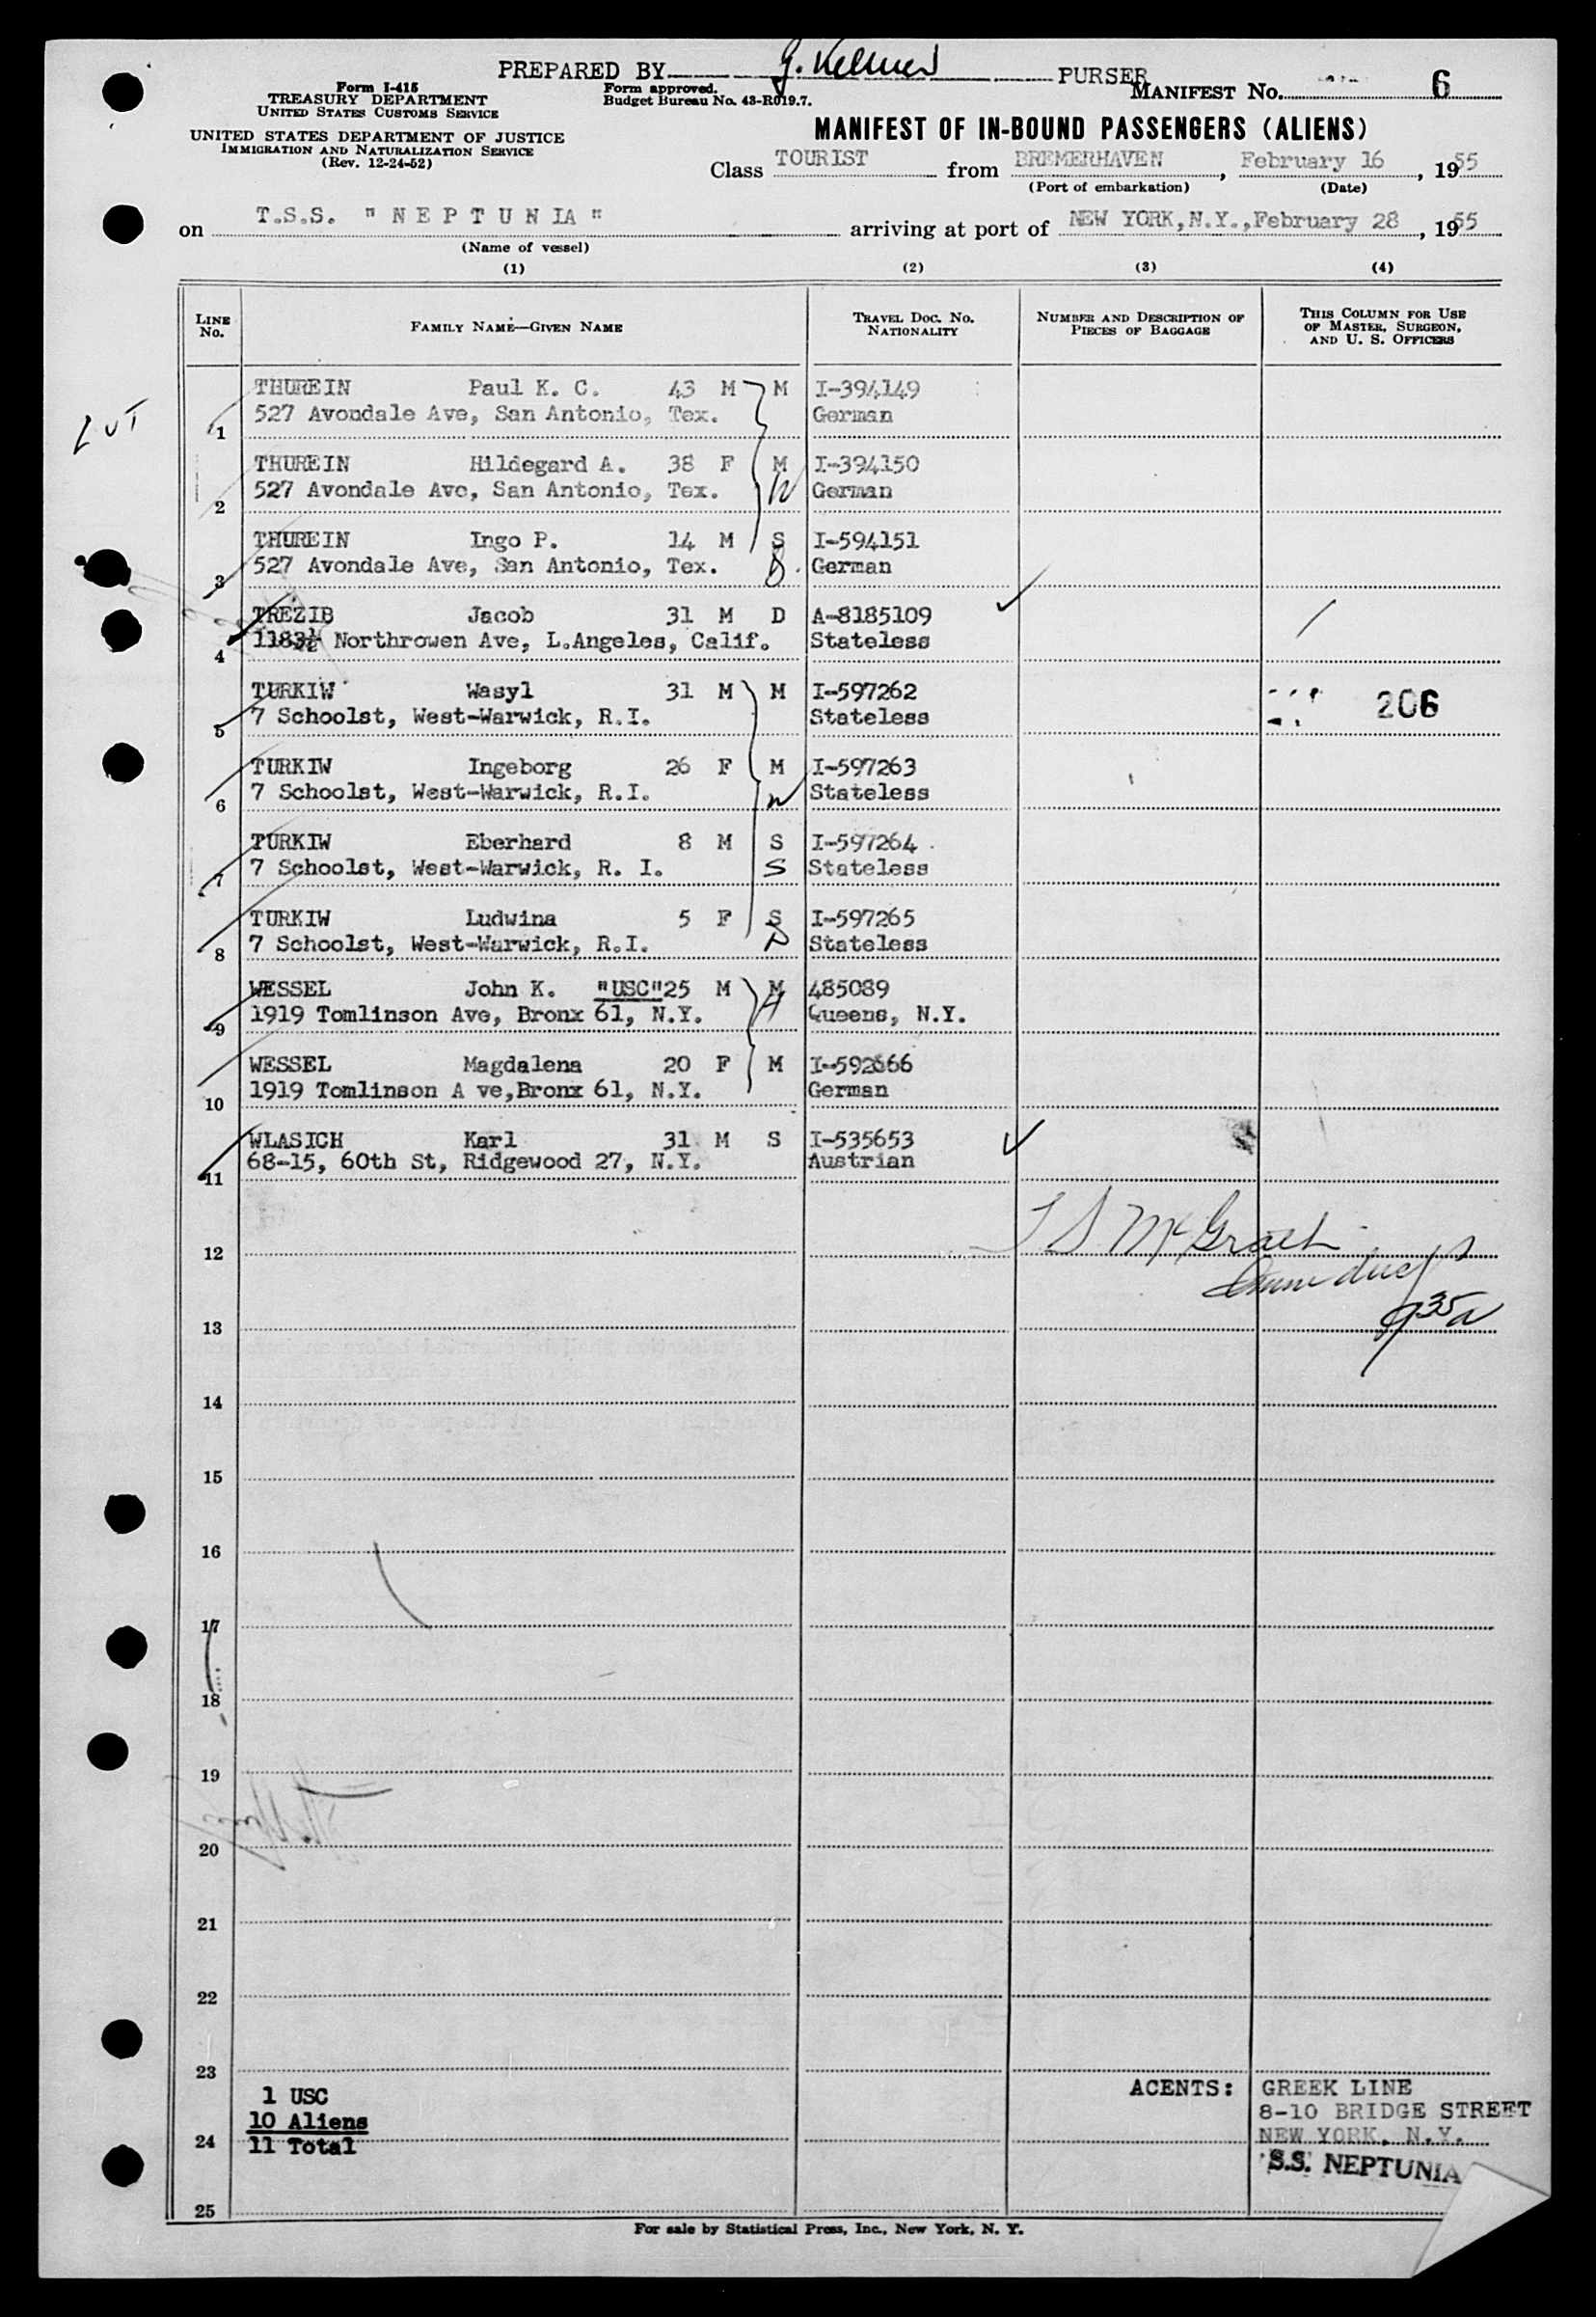 PREPARED BY G. Kellner PURSER
Form I-415
TREASURY DEPARTMENT
UNITED STATES CUSTOMS SERVICE
Form approved.
Budget Bureau No. 43-R019.7.
MANIFEST No. 6
UNITED STATES DEPARTMENT OF JUSTICE
IMMIGRATION AND NATURALIZATION SERVICE
(Rev. 12-24-52)
MANIFEST OF IN-BOUND PASSENGERS (ALIENS)
Class TOURIST from BREMERHAVEN, February 16, 1955
(Port of embarkation) (Date)
on T.S.S. "NEPTUNIA" arriving at port of NEW YORK, N.Y., February 28, 1955
(Name of vessel)
(1) (2) (3) (4)
LINE No. FAMILY NAME—GIVEN NAME TRAVEL DOC. NO. NATIONALITY NUMBER AND DESCRIPTION OF PIECES OF BAGGAGE THIS COLUMN FOR USE OF MASTER, SURGEON, AND U. S. OFFICERS
THUREIN Paul K. C. 43 M M I-394149
1 527 Avondale Ave, San Antonio, Tex. German
THUREIN Hildegard A. 38 F M I-394150
2 527 Avondale Ave, San Antonio, Tex. W German
THUREIN Ingo P. 14 M S I-594151
3 527 Avondale Ave, San Antonio, Tex. German
TREZIB Jacob 31 M D A-8185109
4 1183½ Northrowen Ave, L.Angeles, Calif. Stateless
TURKIW Wasyl 31 M M I-597262 206
5 7 Schoolst, West-Warwick, R.I. Stateless
TURKIW Ingeborg 26 F M I-597263
6 7 Schoolst, West-Warwick, R.I. W Stateless
TURKIW Eberhard 8 M S I-597264
7 7 Schoolst, West-Warwick, R. I. S Stateless
TURKIW Ludwina 5 F S I-597265
8 7 Schoolst, West-Warwick, R.I. D Stateless
WESSEL John K. "USC" 25 M M 485089
9 1919 Tomlinson Ave, Bronx 61, N.Y. H Queens, N.Y.
WESSEL Magdalena 20 F M I-592666
10 1919 Tomlinson A ve,Bronx 61, N.Y. German
WLASICH Karl 31 M S I-535653
11 68-15, 60th St, Ridgewood 27, N.Y. Austrian
12 McGrath
13
14
15
16
17
18
19
20
21
22
23
1 USC ACENTS: GREEK LINE
10 Aliens 8-10 BRIDGE STREET
24 11 Total NEW YORK, N.Y.
S.S. NEPTUNIA
25
For sale by Statistical Press, Inc., New York, N. Y.